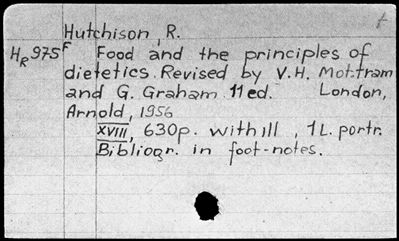 Hutchison, R.
HR975F Food and the principles of
dietetics. Revised by V.H. Mottram
and G. Graham 11 ed. London,
Arnold, 1956
XVIII, 630p. with ill, 1 L. portr.
Bibliogr. in foot-notes.